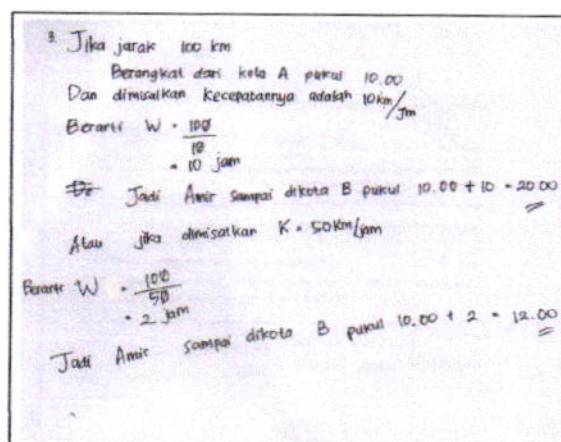 3. Jika jarak 100 km
Berangkat dari kota A pukul 10.00
Dan dimisalkan kecepatannya adalah 10 km/Jm
Berarti W = 100
10
= 10 jam
Jadi Amir sampai dikota B pukul 10.00 + 10 = 20.00
Atau jika dimisalkan K = 50 Km/jam
Berarti W = 100
50
= 2 jam
Jadi Amir sampai dikota B pukul 10.00 + 2 = 12.00